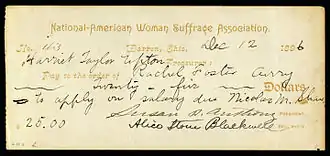 National-American Woman Suffrage Association.
No. 1113 Warren, Ohio, Dec 12 1896
Harriet Taylor Upton Treasurer:
Pay to the order of Rachel Foster Avery
Twenty-five Dollars
to apply on salary due Nicolas M. Shaw
Susan B. Anthony
$25.00 Alice Stone Blackwell